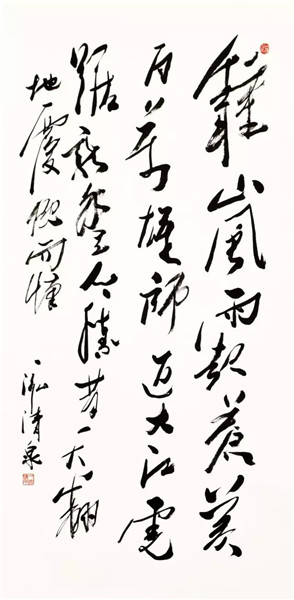 鍾山風雨起蒼黄
百萬雄師過大江虎
踞龍盤今勝昔天翻
地覆慨而慷
一泓清泉